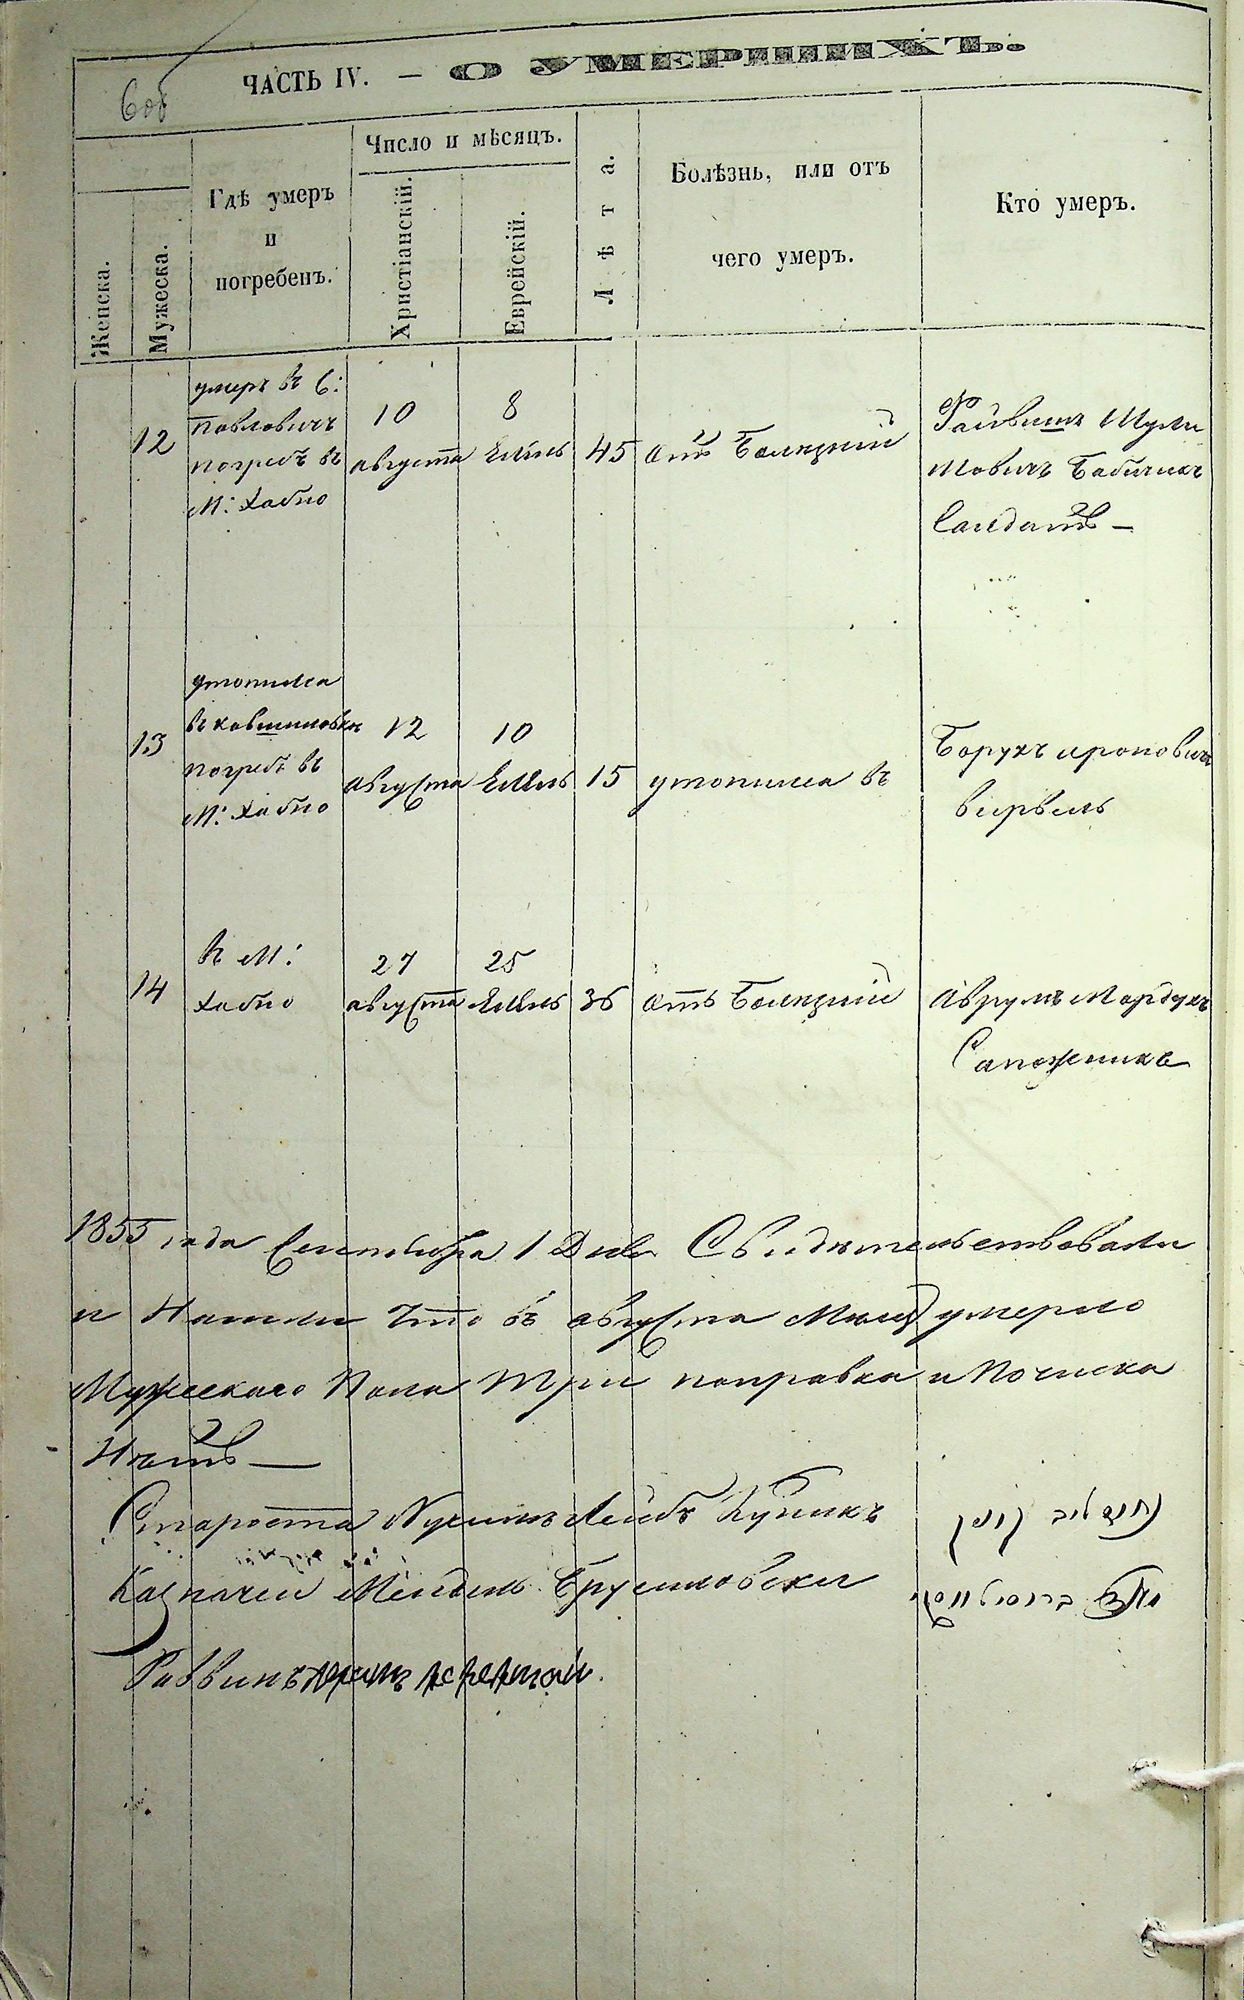 6об
ЧАСТЬ IV. — О УМЕРШИХЪ.
Женска.
Мужеска.
Гдѣ умеръ
и
погребенъ.
Число и мѣсяцъ.
Христіанскій.
Еврейскій.
Лѣта.
Болѣзнь, или отъ
чего умеръ.
Кто умеръ.
12
умеръ въ С:
Павловичъ
погребъ въ
М: Хабно
10
августа
8
Елюль
45
отъ Болезній
Файвишъ Шули
мовичъ Бабичикъ
Солдатъ —
13
утопился
погребъ въ
М: Хабно
12
августа
10
Елюль
15
утопился въ
Борухъ
14
в М:
Хабно
27
августа
25
Елюль
36
отъ Болезній
Аврумъ Мордухъ
Сапожникъ
1855 года Сентября 1 Дня Свидѣтельствовали
и Нашли Что въ августа Месяц умерло
Мужескаго Пола три поправка и Почиска
Нѣтъ —
Староста Нухимъ Лейбъ Куникъ
Казначеи Мендель Брусиловски
ברוסילווסקי
Раввинъ